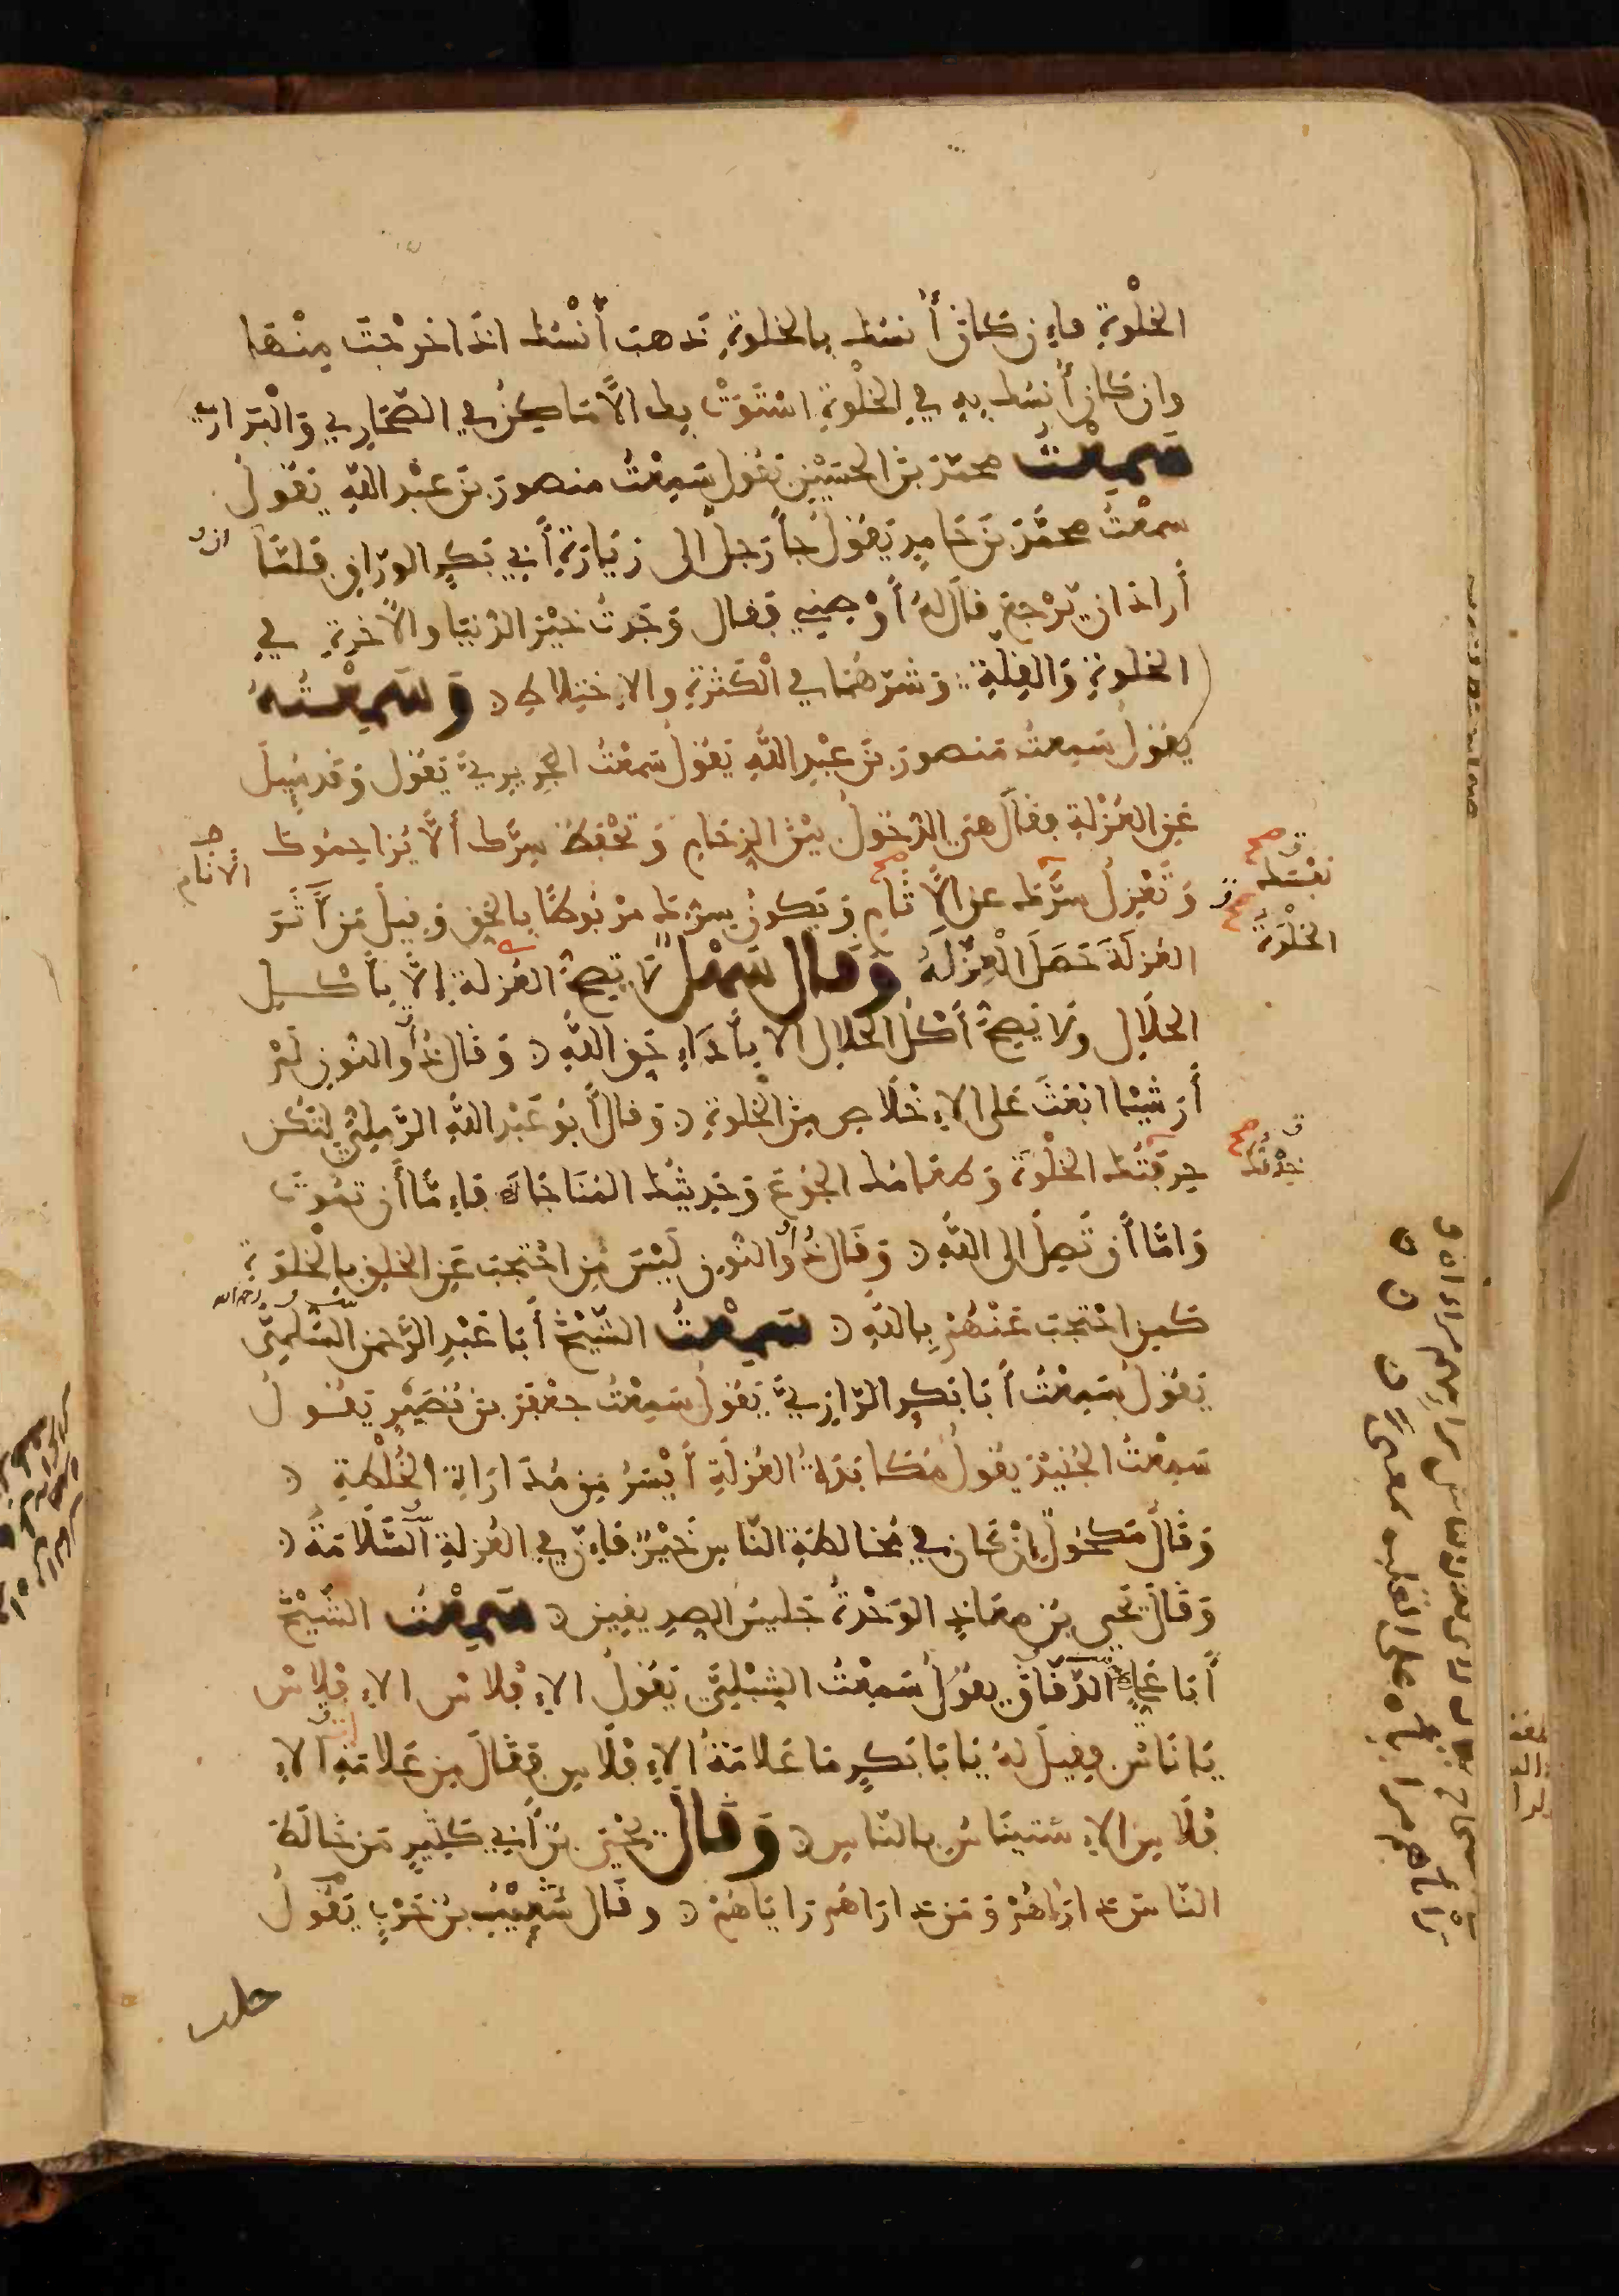 الخلْوةِ فإن كان أُنسُك بالخلوةِ ذهب أُنْسُك اذا خرجْتَ مِنْها
وإن كان أُنسُك بهِ في الخلْوةِ استَوتْ بك الأماكنُ في الصَّحاري والبَراري
سمعتُ محمّدَ بنَ الحسَيْنِ يَقُول سَمِعْتُ منصورَ بنَ عبْدِ اللهِ يَقُولُ
سمعْتُ محمّدَ بنَ حَامِدٍ يَقُولُ جاءَ رَجلٌ إلى زيَارَةِ أبي بَكرٍ الورّاقِ فلمّا
أرادَ ان يَرْجعَ قالَ لهُ أَوْصِنِي فقال وَجَدتُ خيْرَ الدُّنيَا والآخرةِ في
الخلوةِ وَالقِلّةِ وشرَّهُمَا في الْكَثرةِ والإختِلاطِ وَسَمِعْتُهُ
يقولُ سَمِعتُ مَنصورَ بنَ عبْدِ اللهِ يَقُولُ سَمعْتُ الجَرِيرِيَّ يَقُول وَقد سُئِلَ
عنِ العُزْلةِ فقالَ هيَ الدُّخولُ بيْنَ الزِّحَامِ وَتحْفظُ سِرَّك ألّا يُزاحِمُوكَ
وَتَعْزِلُ سِرَّك عن الآثام وَيَكونُ سِرُّك مرْبُوطًا بالحَقِ وَقيلَ مَن آثَرَ
العُزلَةَ حَصَلَ الْعِزُّ لَهُ وَقال سَهْلٌ لا تَصِحُّ العُزلةُ إلاَّ بأَكلِ
الحلَالِ ولَا يَصِحُّ أَكْلُ الحَلالِ الا بأَدَاءِ حَقِ اللهِ وَقَال ذُو النونِ لَمْ
أَرَ شَيْئا ابْعَثَ على الإخْلَاصِ مِنَ الخلوةِ وقالَ أبُو عَبْدِ اللهِ الرَّمليُّ لِتَكن
خِرقَتُك الخلْوَةَ وطعَامُك الجُوعَ وَحَدِيثُك المُنَاجَاةَ فإمّا أن تَمُوتَ
وَامّا أن تَصِلَ الى اللهِ وَقَال ذُو النّونِ لَيْسَ مَنِ احْتَجَبَ عَنِ الخلقِ بالْخلوَةِ
كمنِ احْتجَبَ عَنْهُمْ بِاللهِ سمعتُ الشّيْخَ أبَا عَبْدِ الرَّحمنِ السُّلَمِيَّ رحمه الله
يَقولُ سَمِعْتُ أبَا بَكرٍ الرّازِيَّ يَقُولُ سَمِعْتُ جعْفرَ بنَ نُصَيْرٍ يَقُولُ
سَمِعْتُ الجُنَيْدَ يَقولُ مُكابَدَةُ العُزلَةِ أيْسَرُ مِن مُدَاراةِ الخُلْطةِ
وَقَالَ مَكحُولٌ إنْ كَان في مُخالطةِ النّاسِ خَيْرٌ فإنَّ في العُزلةِ السَّلَامَةَ
وَقَال يَحيى بْن معَاذٍ الوَحْدةُ جَليسُ الصِدِيقينَ سَمِعْتُ الشّيْخَ
أَبَا عَليٍّ الدّقّاقَ يقُولُ سَمِعْتُ الشِّبْليَّ يَقُولُ الإفْلاسَ الإفْلاسَ
يَا نَاسُ فقيلَ لهُ يَا بَا بَكرٍ مَا عَلامَةُ الإفْلَاسِ فقَالَ مِن عَلَامَةِ الإ
فْلَاسِ الإستينَاسُ بالنّاسِ وَقَالَ يَحْيَى بنُ أبي كَثيرٍ مَن خَالَطَ
النّاسَ دَارَاهُمْ وَمَن دَارَاهُم رَايَاهُمْ وقَال شُعَيْبُ بنُ حَرْبٍ يَقُولُ
الأنام
نفْسَك
الخلْوَةَ
خِدْنُك